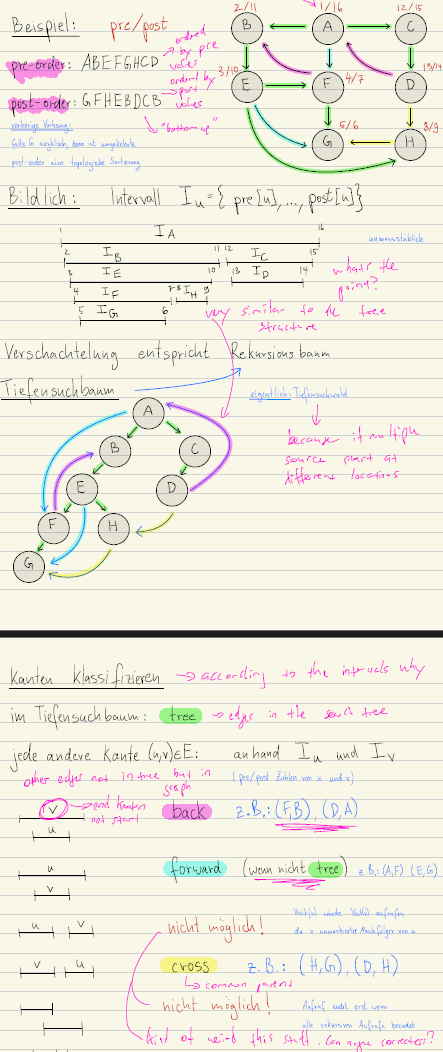 Beispiel: pre/post
pre-order: ABEFGHCD
ordered by pre values
post-order: GFHEBDCB
ordered by post values
"bottom up"
vorherige Vorlesung:
falls G azyklisch, dann ist umgekehrte
post-order eine topologische Sortierung
2/11 1/16 12/15
B A C
3/10 4/7 13/14
E F D
5/6 8/9
G H
Bildlich: Intervall Iu = { pre[u], ..., post[u] }
1 IA 16
unmassstäblich
2 IB 11 12 IC 15
3 IE 10 13 ID 14
what's the point?
4 IF 7 8 IH 9
5 IG 6
very similar to the tree structure
Verschachtelung entspricht Rekursionsbaum
Tiefensuchbaum
eigentlich: Tiefensuchwald
because if multiple
source start at
different locations
A
B C
E D
F H
G
Kanten klassifizieren → according to the intervals why
im Tiefensuchbaum: tree → edges in the search tree
jede andere Kante (u,v)∈E: anhand Iu und Iv
other edges not in tree but in graph
(pre/post Zahlen von u und v)
v → end knoten not start
u
back z.B.: (F,B), (D,A)
u
v
forward (wenn nicht tree) z.B.: (A,F) (E,G)
u v
nicht möglich!
Visit(u) würde Visit(v) aufrufen
da v unmarkierter Nachfolger von u
v u
cross z.B.: (H,G), (D,H)
↳ common parent
nicht möglich!
Aufruf endet erst wenn
alle rekursiven Aufrufe beendet
kind of weird this stuff. Can argue correctness?